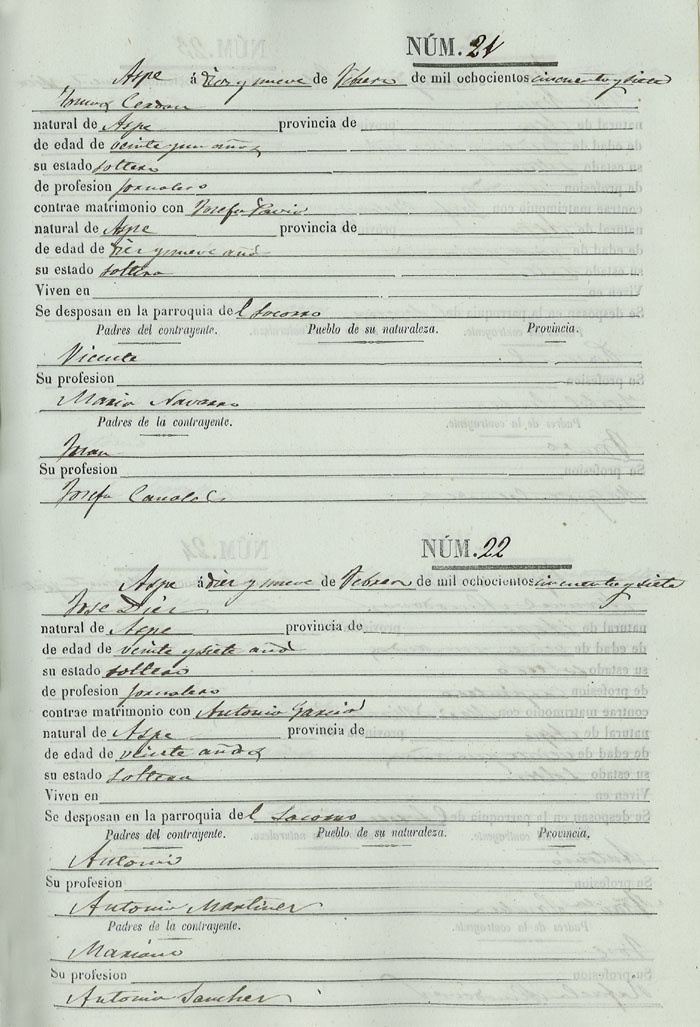 NÚM. 21
Aspe á diez y nueve de Febrero de mil ochocientos cincuenta y siete
Tomas Cerdan
natural de Aspe provincia de
de edad de veinte y un años
su estado soltero
de profesion jornalero
contrae matrimonio con Josefa Pavia
natural de Aspe provincia de
de edad de Diez y nueve años
su estado soltera
Viven en
Se desposan en la parroquia del Socorro
Padres del contrayente. Pueblo de su naturaleza. Provincia.
Vicente
Su profesion
Maria Navarro
Padres de la contrayente.
Juan
Su profesion
Josefa
NÚM. 22
Aspe á diez y nueve de Febrero de mil ochocientos cincuenta y siete
Jose Diez
natural de Aspe provincia de
de edad de veinte y siete años
su estado soltero
de profesion jornalero
contrae matrimonio con Antonia Garcia
natural de Aspe provincia de
de edad de veinte años
su estado soltera
Viven en
Se desposan en la parroquia del Socorro
Padres del contrayente. Pueblo de su naturaleza. Provincia.
Antonio
Su profesion
Antonia Martinez
Padres de la contrayente.
Mariano
Su profesion
Antonia Sanchez